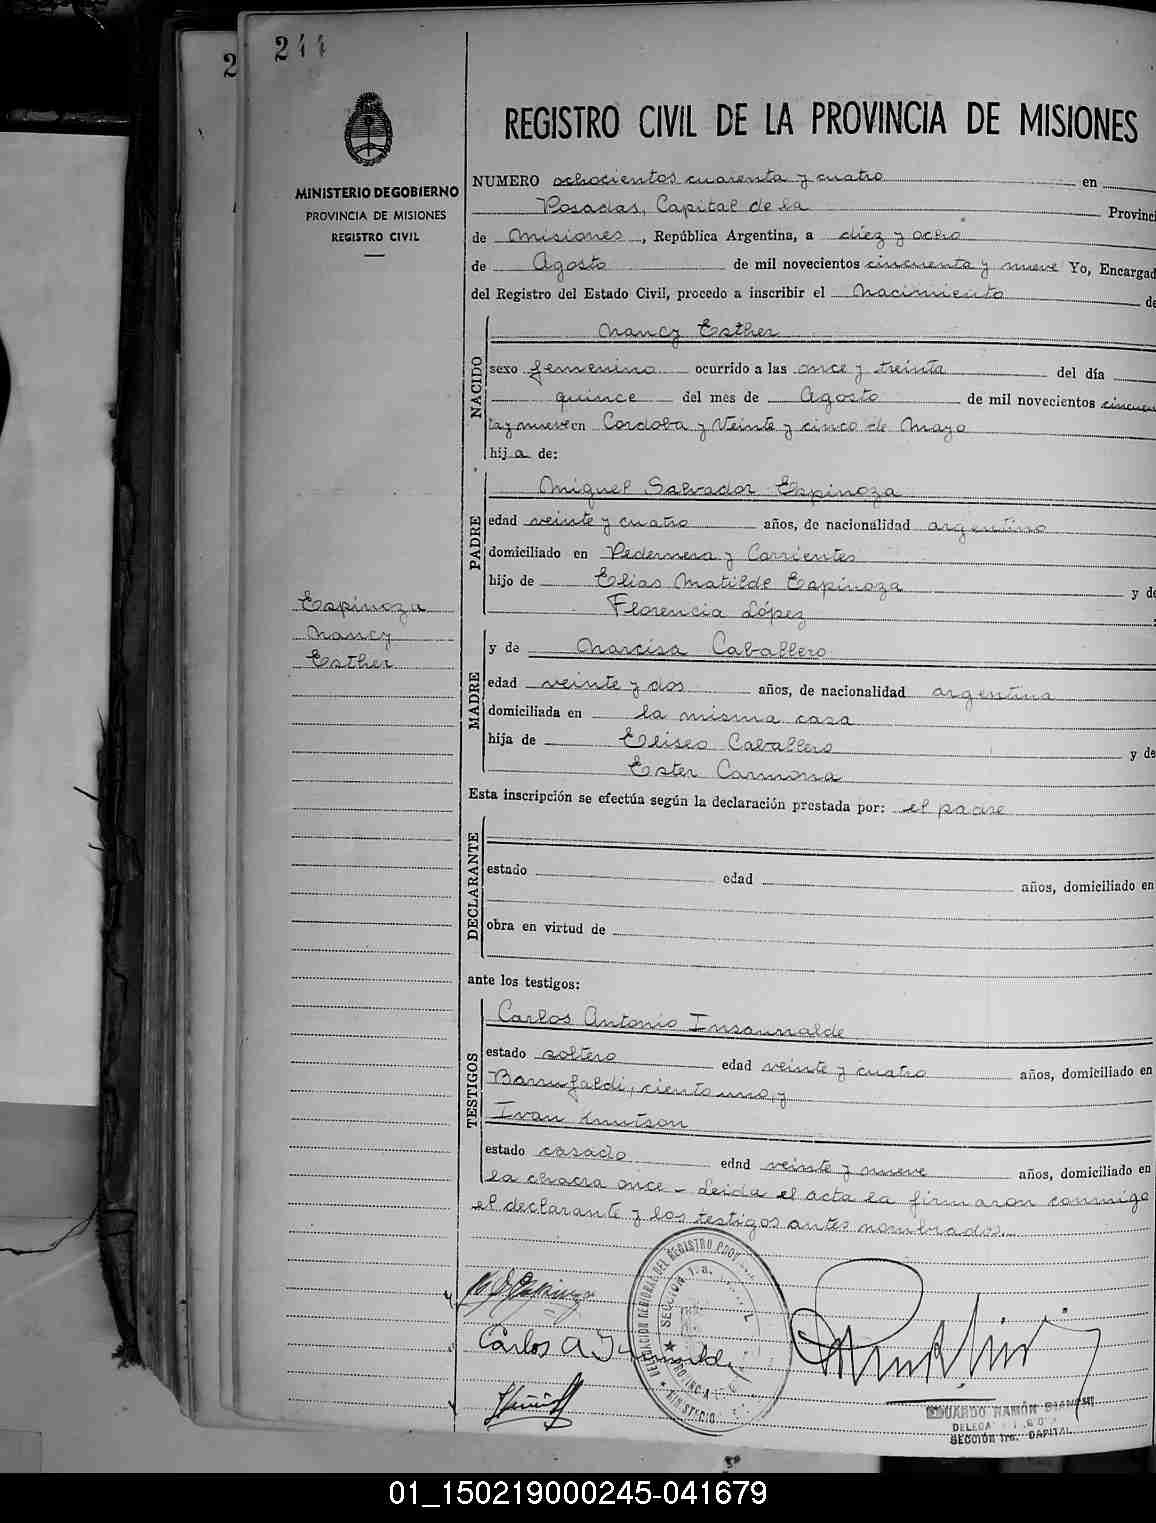 244
2
MINISTERIO DE GOBIERNO
PROVINCIA DE MISIONES
REGISTRO CIVIL
REGISTRO CIVIL DE LA PROVINCIA DE MISIONES
NUMERO ochocientos cuarenta y cuatro en
Posadas, Capital de la Provinci
de Misiones, República Argentina, a diez y ocho
de Agosto de mil novecientos cincuenta y nueve Yo, Encargad
del Registro del Estado Civil, procedo a inscribir el Nacimiento de
NACIDO
Nancy Esther
sexo femenino ocurrido a las once y treinta del día
quince del mes de Agosto de mil novecientos cincuen
ta y nueve en Cordoba y Veinte y cinco de Mayo
hija de:
PADRE
Miguel Salvador Espinoza
edad veinte y cuatro años, de nacionalidad argentino
domiciliado en Pedernera y Corrientes
hijo de Elias Matilde Espinoza y de
Florencia López
Espinoza
Nancy
Esther
MADRE
y de Narcisa Caballero
edad veinte y dos años, de nacionalidad argentina
domiciliada en la misma casa
hija de Eliseo Caballero y de
Ester Carmona
Esta inscripción se efectúa según la declaración prestada por: el padre
DECLARANTE
estado edad años, domiciliado en
obra en virtud de
ante los testigos:
TESTIGOS
Carlos Antonio Insaurralde
estado soltero edad veinte y cuatro años, domiciliado en
Barrufaldi, ciento uno, y
Ivan Knutson
estado casado edad veinte y nueve años, domiciliado en
la chacra once - Leida el acta la firmaron conmigo
el declarante y los testigos antes nombrados.-
DELEGACION REGIONAL DEL REGISTRO PROV
SECCION 1a.
PROVINCIA
MINISTERIO
Carlos A Insaurralde
EDUARDO RAMÓN
DELEGADO
SECCIÓN 1ra. CAPITAL
01_150219000245-041679